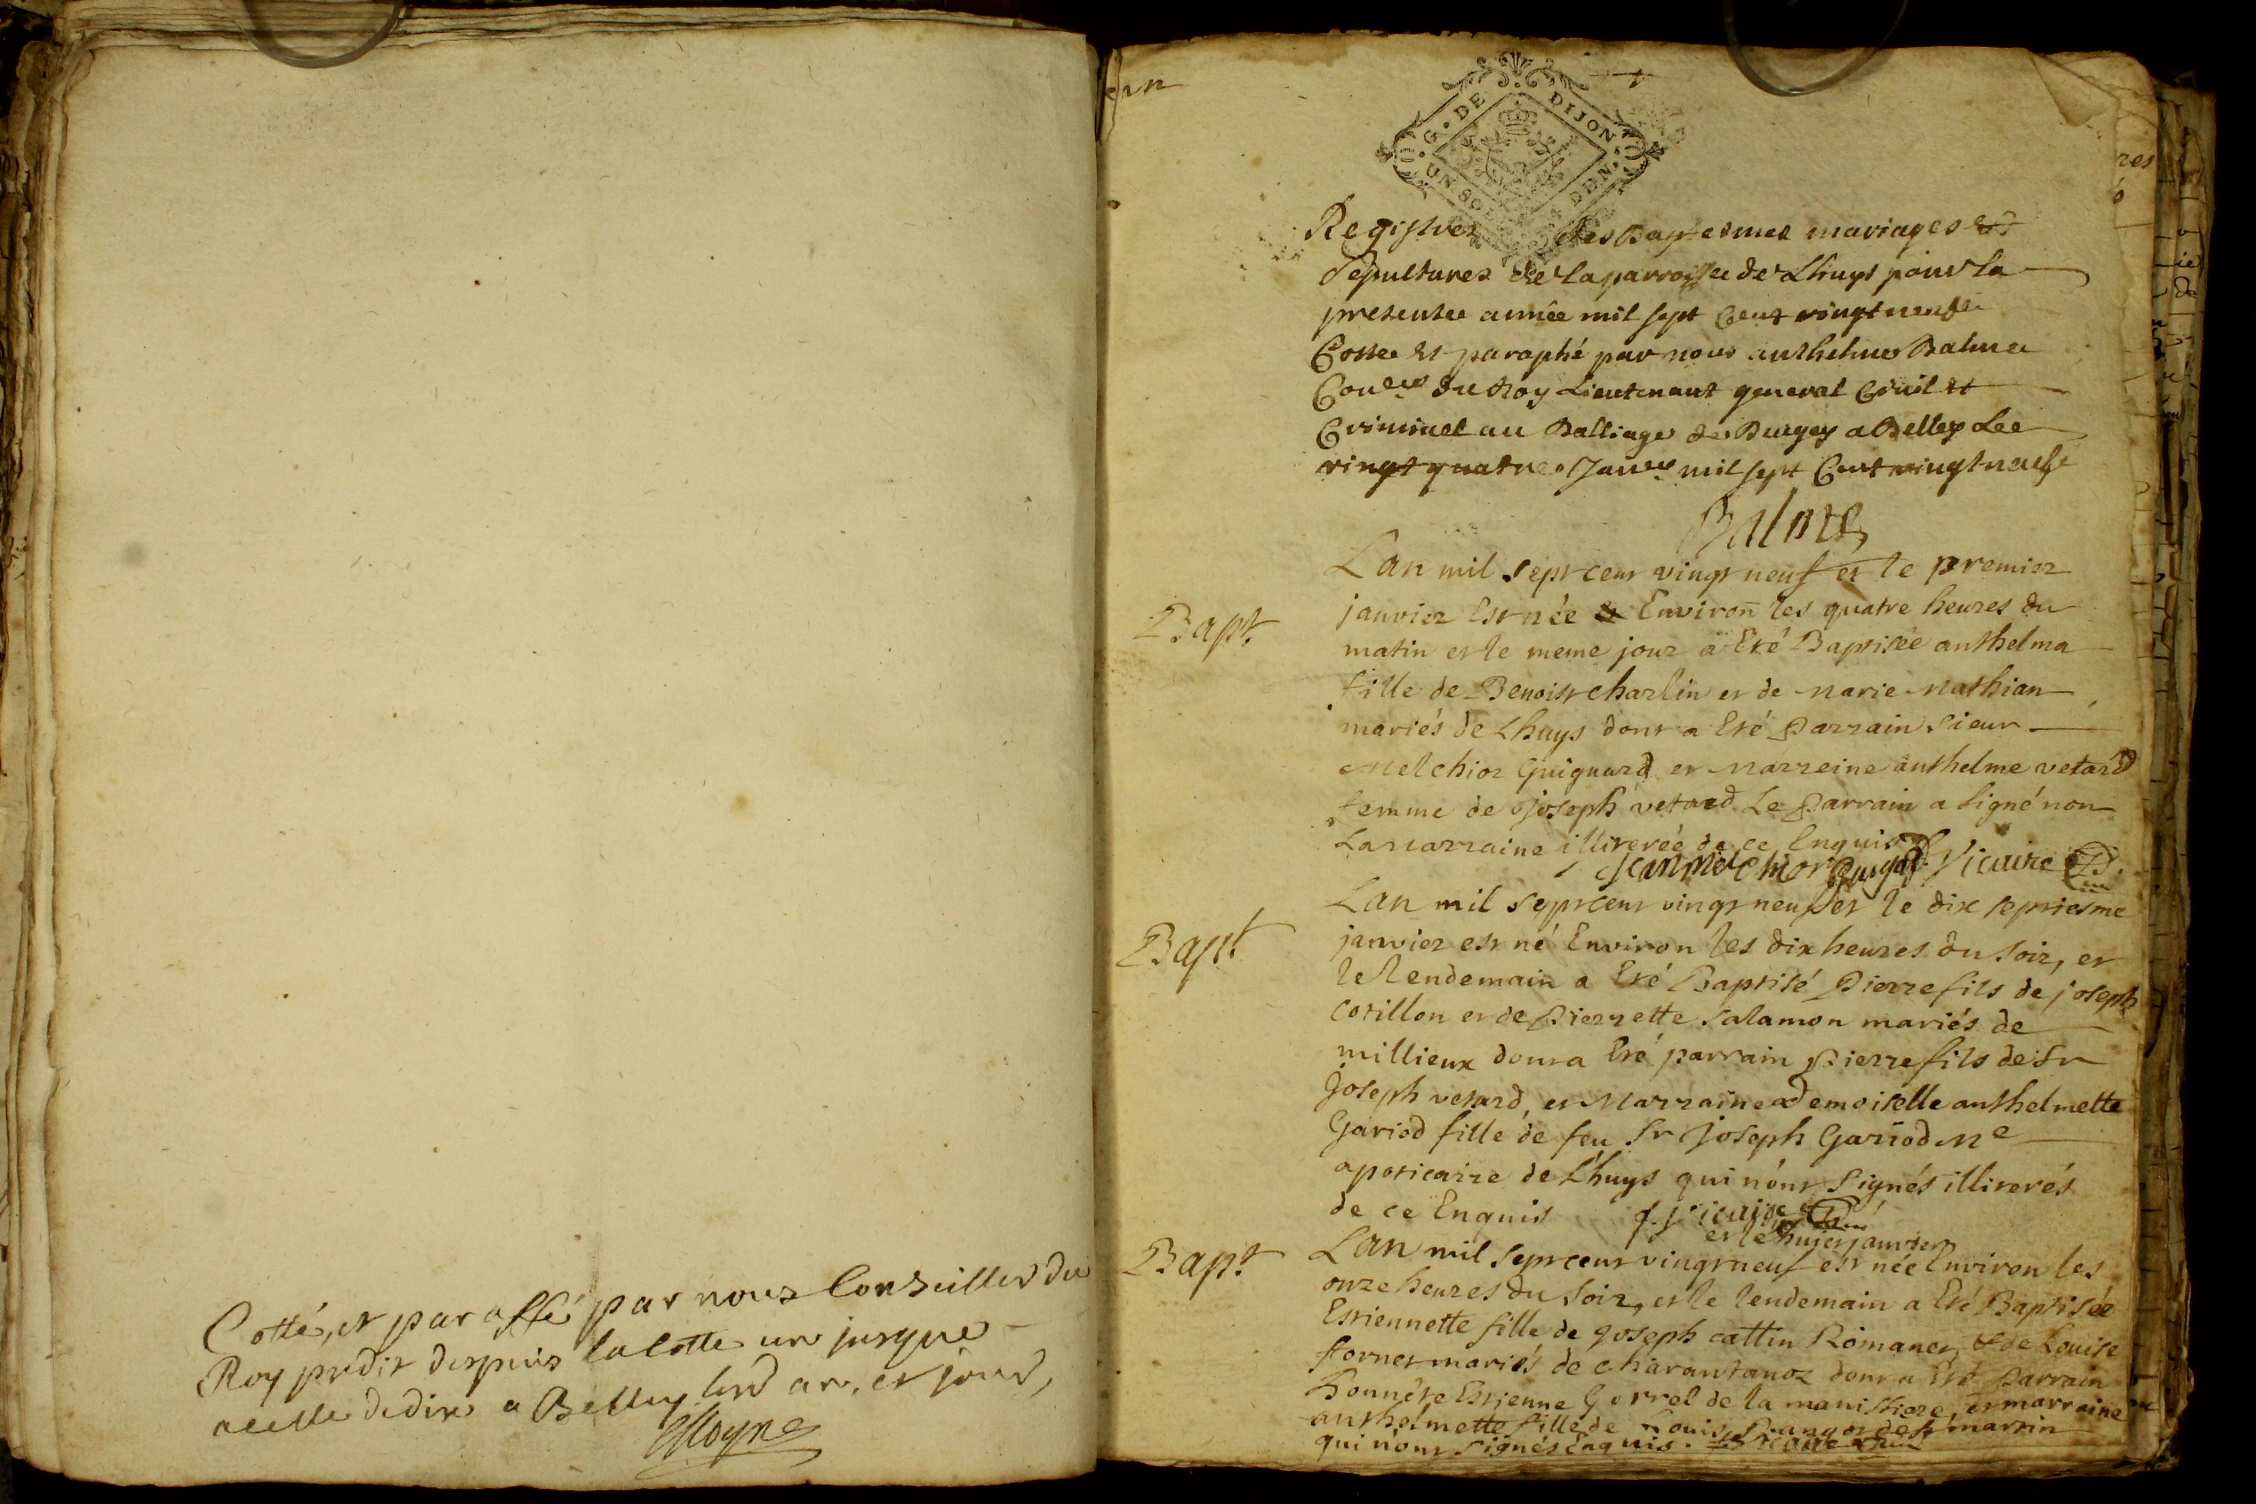 Cotté, et paraffé par nous Conseiller du
Roy prédit despuis la cotte une jusque
a celle de dix a Belley led an, et jour,
G. DE DIJON
UN SOL DEN.
Registre des Baptesmes mariages et
Sepultures de la parroisse de Lhuys pour la
presente année mil sept Cent vingt neufe
Cottée et paraphé par nous anthelme Balme
Coner du Roy Lieutenant general Civil et
Criminel au Balliage de Bugey a Belley Lee
vingt quatre Janer mil sept Cent vingt neufe
Balme
Lan mil sept cent vingt neuf et le premier
Bapt
janvier est née Environ les quatre heures du
matin et le meme jour a Eté Baptisée anthelma
fille de Benoist charlin et de marie mathian
mariés de Lhuys dont a Eté Parrain sieur
Melchior Guignard et marreine anthelme vetard
femme de joseph vetard Le Parrain a signé non
La marraine illiterée de ce Enquis
Jean melchior Vicaire
Lan mil sept cent vingt neuf et le dix septiesme
Bapt.
janvier est né Environ les dix heures du soir, et
le lendemain a Eté Baptisé Pierre fils de joseph
cotillon et de Pierrette salamon mariés de
millieux dont a Eté parrain Pierre fils de Sr
Joseph vetard, et Marraine demoiselle anthelmette
Gariod fille de feu Sr joseph Gariod me
apoticaire de Lhuys qui n'ont signés illiterés
de ce Enquis Vicaire
et le janvier
Bapt
Lan mil sept cent vingt neuf est née Environ les
onze heures du soir, et le lendemain a Eté Baptisée
Estiennette fille de joseph cattin Romanet, et de Louise
fornet mariés de charantanoz dont a Eté Parrain
honnéte Estienne Gorrel de la manistiere, et marraine
anthelmette fille de Louis de St martin
qui n'ont signés enquis.